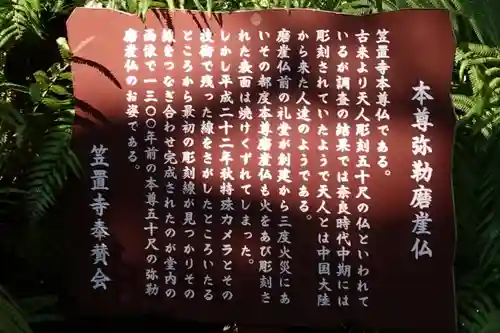 本尊弥勒磨崖仏
笠置寺本尊仏である。
古来より天人彫刻五十尺の仏といわれて
いるが調査の結果では奈良時代中期には
彫刻されていたようで天人とは中国大陸
から来た人達のようである。
磨崖仏前の礼堂が創建から三度火災にあ
いその都度本尊磨崖仏も火をあび彫刻さ
れた表面は焼けくずれてしまった。
しかし平成二十二年秋特殊カメラとその
技術で残った線をさがしたところいたる
ところから最初の彫刻線が見つかりその
線をつなぎ合わせ完成されたのが堂内の
画像で一三〇〇年前の本尊五十尺の弥勒
磨崖仏のお姿である。
笠置寺奉賛会